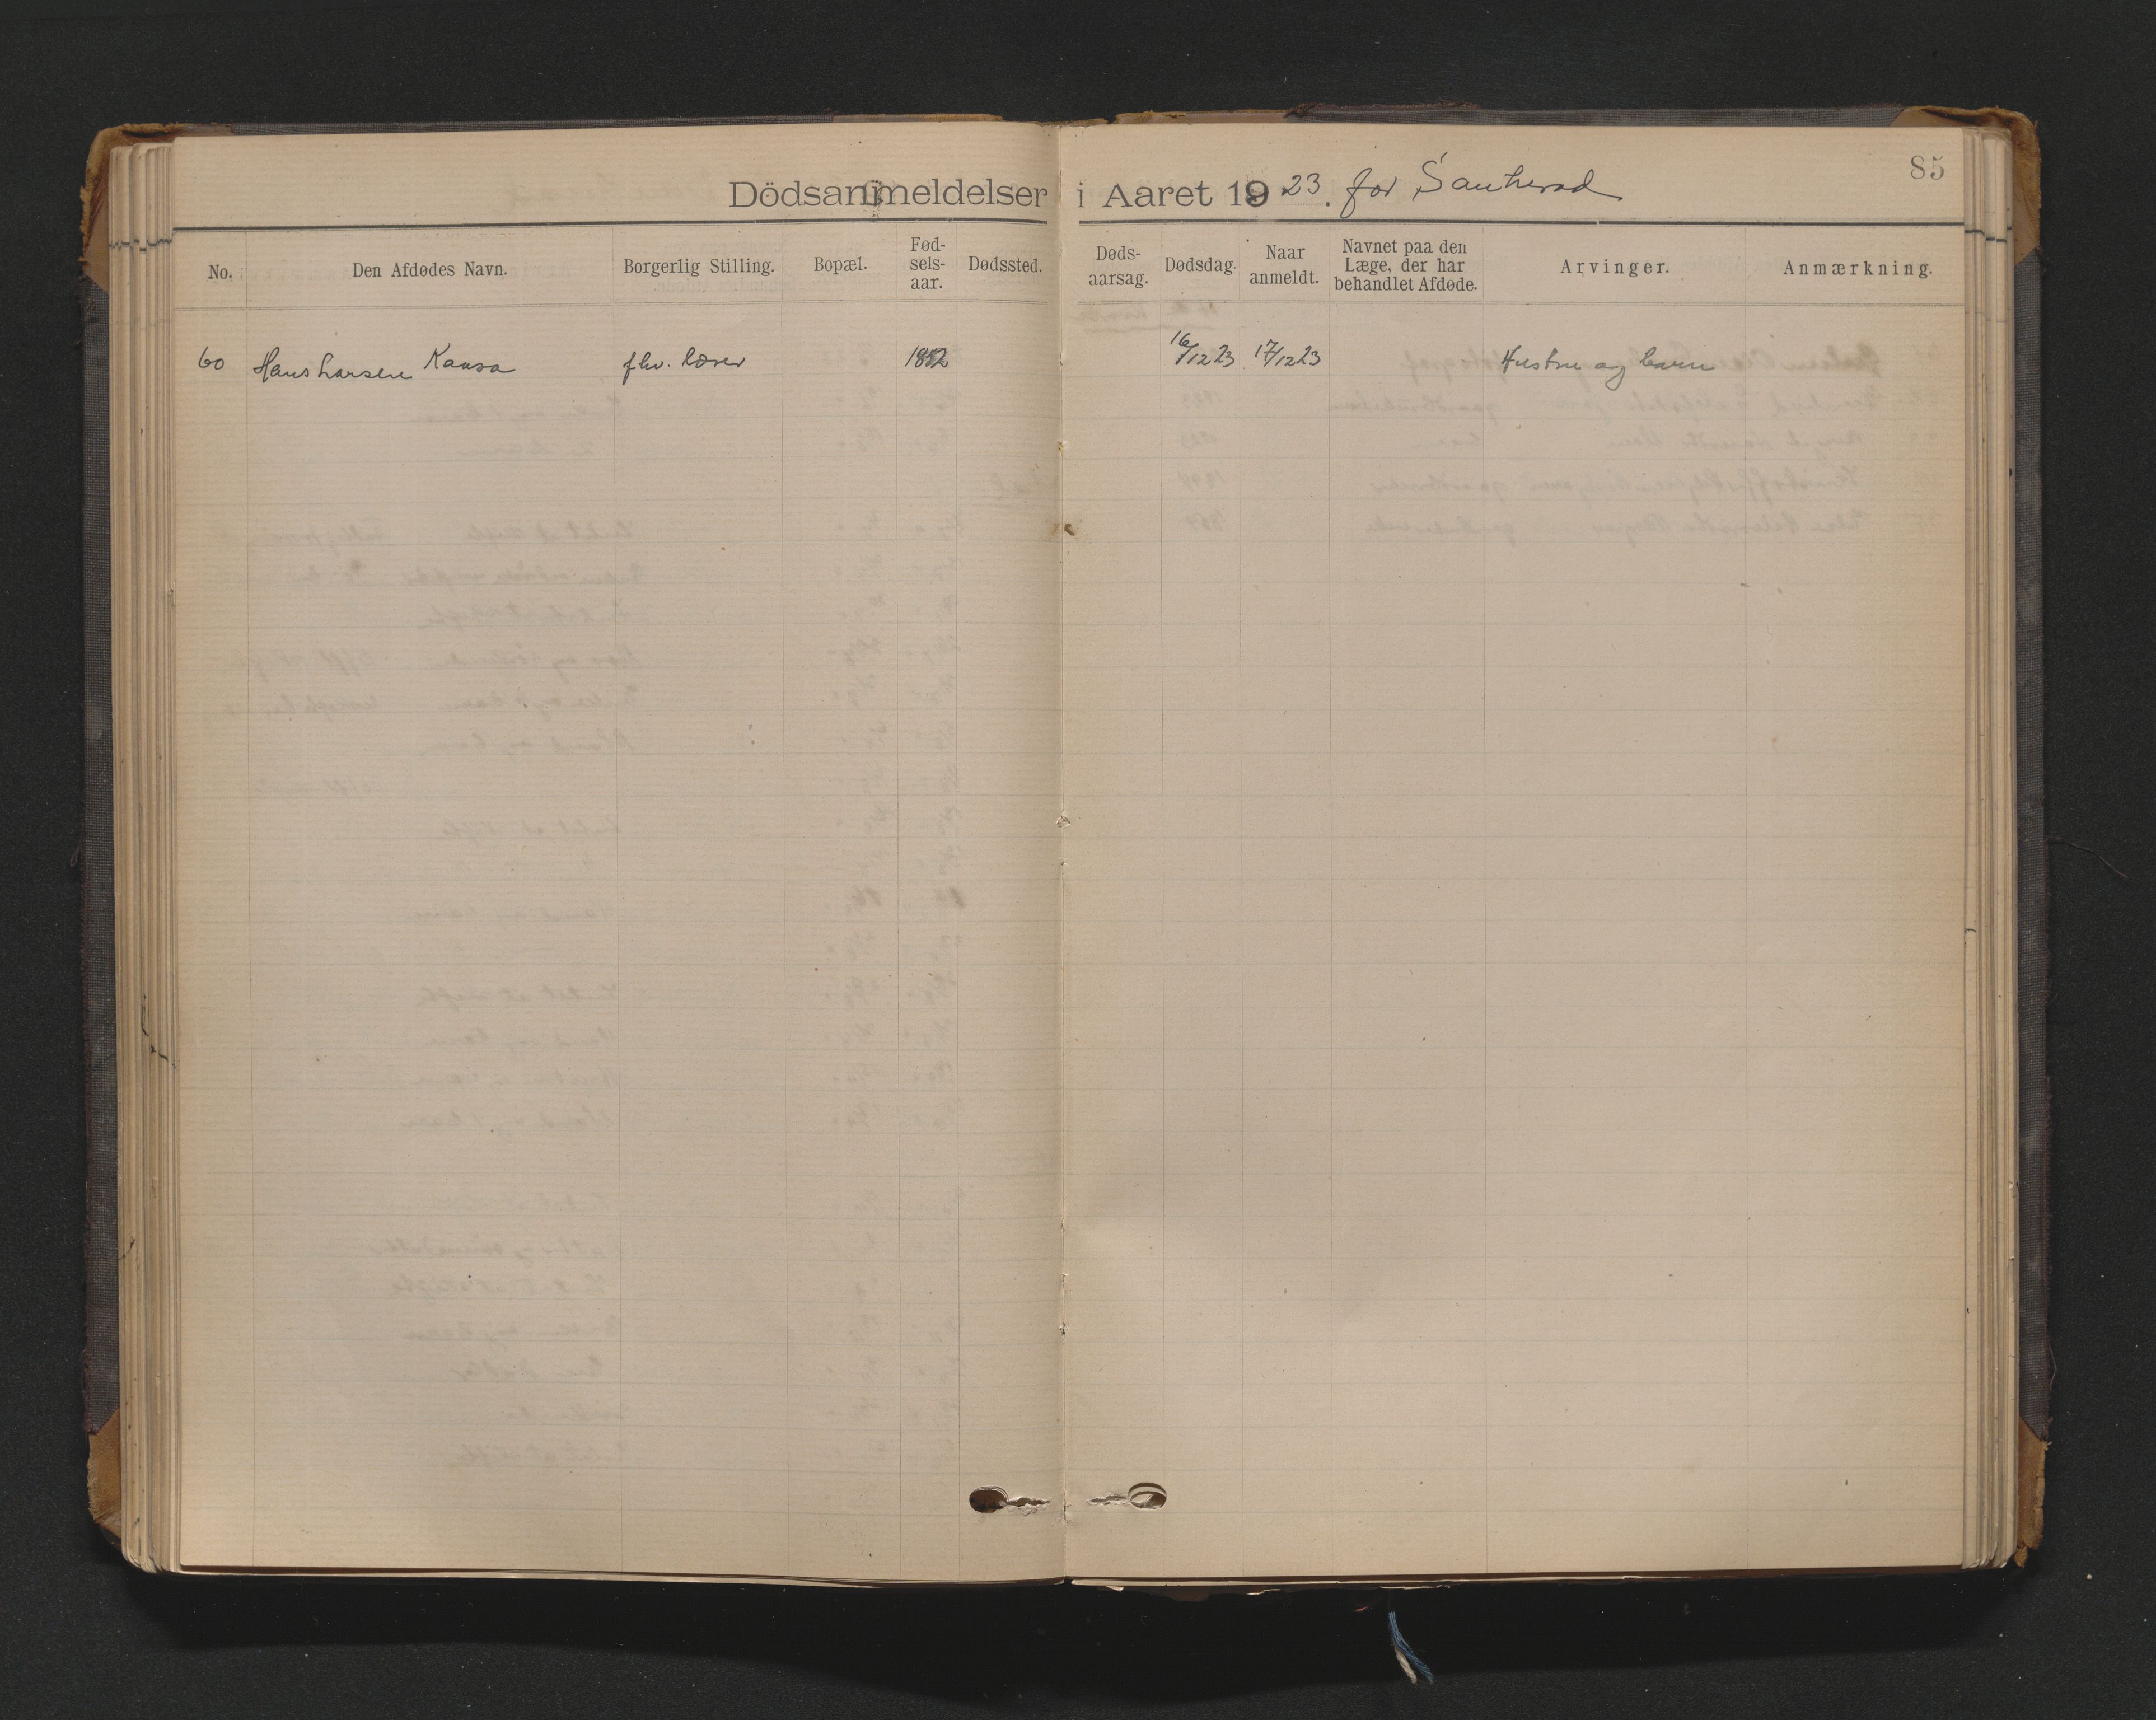 85
Dödsanmeldelser i Aaret 1923. for Sauherad
No. Den Afdødes Navn. Borgerlig Stilling. Bopæl. Fød-sels-aar. Dødssted. Døds-aarsag. Dødsdag. Naar anmeldt. Navnet paa den Læge, der har behandlet Afdøde. Arvinger. Anmærkning.
60 Hans Larsen Kaasa fhv. lærer 1852 16/12 23 17/12 23 Hustru og barn